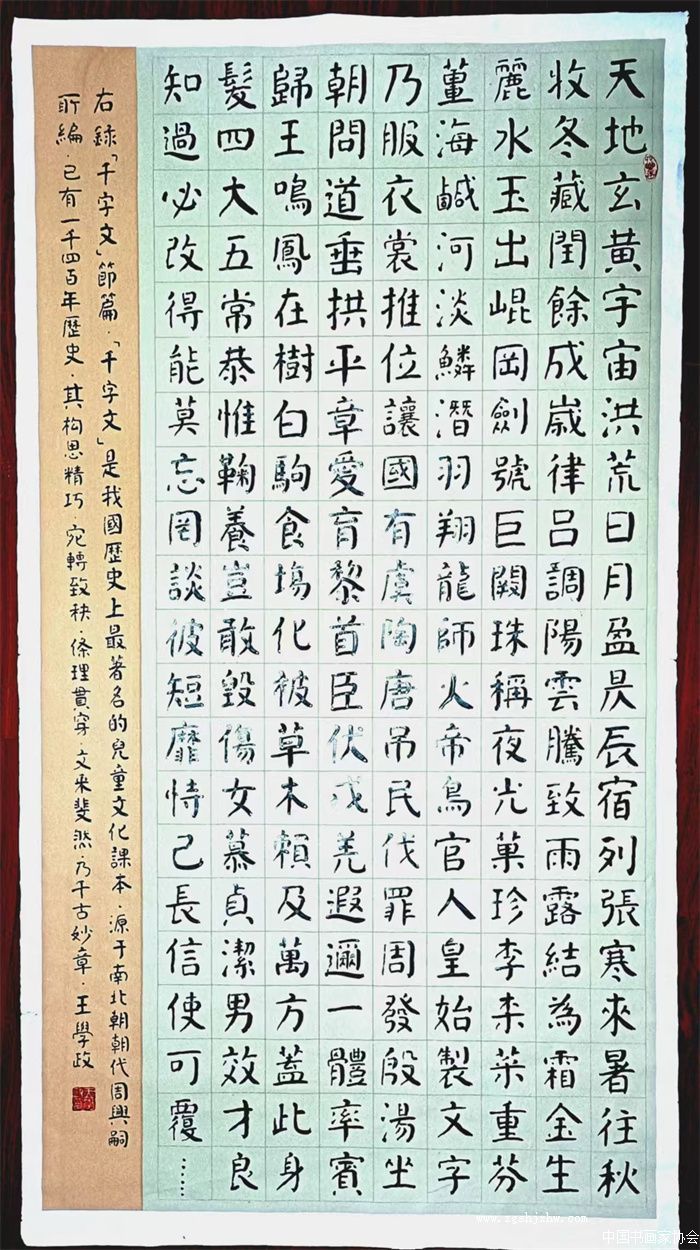 天地玄黄宇宙洪荒日月盈昃辰宿列張寒來暑往秋
收冬藏閏餘成歲律吕調陽雲騰致雨露結為霜金生
麗水玉出崐岡劍號巨闕珠稱夜光菓珍李柰菜重芬
薑海鹹河淡鱗潛羽翔龍師火帝鳥官人皇始製文字
乃服衣裳推位讓國有虞陶唐吊民伐罪周發殷湯坐
朝問道垂拱平章愛育黎首臣伏戎羌遐邇一體率賓
歸王鳴鳳在樹白駒食場化被草木賴及萬方蓋此身
髮四大五常恭惟鞠養豈敢毀傷女慕貞潔男效才良
知過必改得能莫忘罔談彼短靡恃己長信使可覆……
右錄「千字文」節篇．「千字文」是我國歷史上最著名的兒童文化課本．源于南北朝朝代周興嗣
所編．已有一千四百年歷史．其构思精巧．宛轉致秩．條理貫穿．文采斐然．乃千古妙章．王學政
www.zgshjxhw.com
中国书画家协会